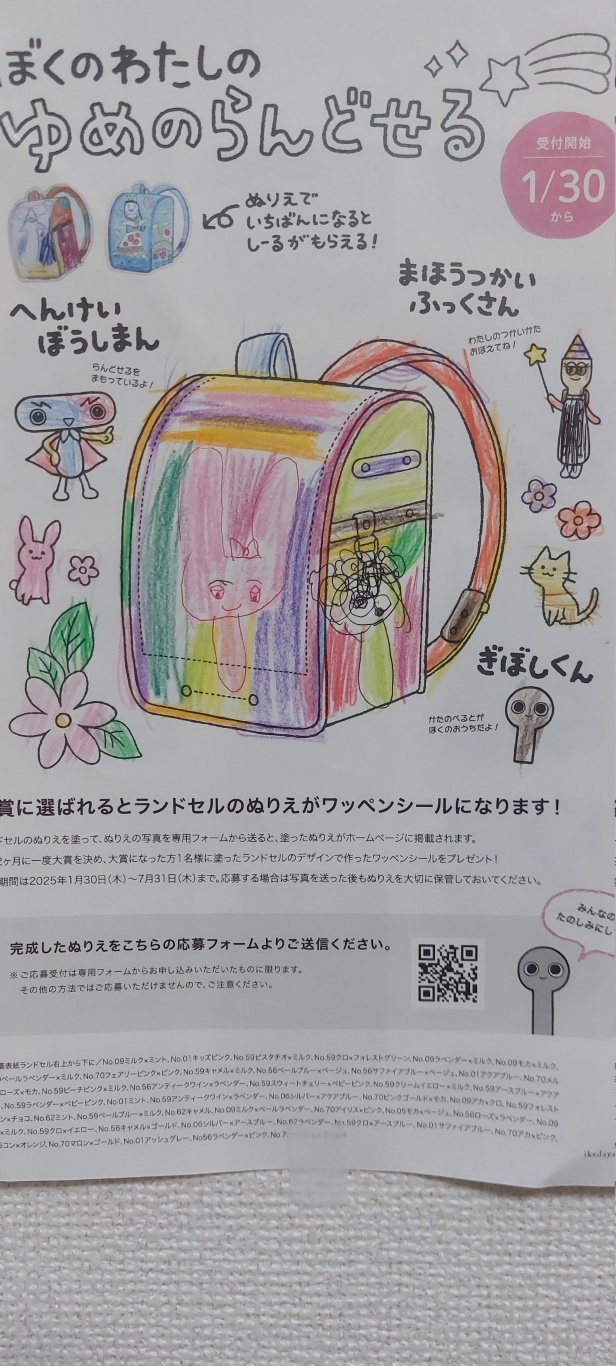 ぼくのわたしの
ゆめのらんどせる
受付開始
1/30
から
ぬりえで
いちばんになると
しーるがもらえる!
まほうつかい
ふっくさん
わたしのつかいかた
おぼえてね!
へんけい
ぼうしまん
らんどせるを
まもっているよ!
ぎぼしくん
かたのべるとが
ぼくのおうちだよ!
賞に選ばれるとランドセルのぬりえがワッペンシールになります!
ドセルのぬりえを塗って、ぬりえの写真を専用フォームから送ると、塗ったぬりえがホームページに掲載されます。
2ヶ月に一度大賞を決め、大賞になった方1名様に塗ったランドセルのデザインで作ったワッペンシールをプレゼント!
期間は2025年1月30日(木)~7月31日(木)まで。応募する場合は写真を送った後もぬりえを大切に保管しておいてください。
みんなの
たのしみにし
完成したぬりえをこちらの応募フォームよりご送信ください。
※ご応募受付は専用フォームからお申し込みいただいたものに限ります。
その他の方法ではご応募いただけませんので、ご注意ください。
表紙ランドセル右上から下に/No.09ミルク×ミント、No.01キッズピンク、No.59ピスタチオ×ミルク、No.59クロ×フォレストグリーン、No.09ラベンダー×ミルク、No.09モカ×ミルク、
ペールラベンダー×ミルク、No.70フェアリーピンク×ピンク、No.59キャメル×ミルク、No.56ペールブルー×ベージュ、No.56サファイアブルー×ベージュ、No.01アクアブルー、No.70メル
ローズ×モカ、No.59ピーチピンク×ミルク、No.56アンティークワイン×ラベンダー、No.59スウィートチェリー×ベビーピンク、No.59クリームイエロー×ミルク、No.59アースブルー×アクア
、No.59ラベンダー×ベビーピンク、No.01ミント、No.59アンティークワイン×ラベンダー、No.06シルバー×アクアブルー、No.70ピンクゴールド×モカ、No.09アカ×クロ、No.59フォレスト
ン×チョコ、No.62ミント、No.59ペールブルー×ミルク、No.62キャメル、No.09ミルク×ペールラベンダー、No.70アイリス×ピンク、No.05モカ×ベージュ、No.56ローズ×ラベンダー、No.09
×ミルク、No.59クロ×イエロー、No.56キャメル×ゴールド、No.06シルバー×アースブルー、No.62ラベンダー、No.59クロ×アースブルー、No.01サファイアブルー、No.70アカ×ピンク、
コン×オレンジ、No.70マロン×ゴールド、No.01アッシュグレー、No56ラベンダー×ピンク、No.7
ikeday